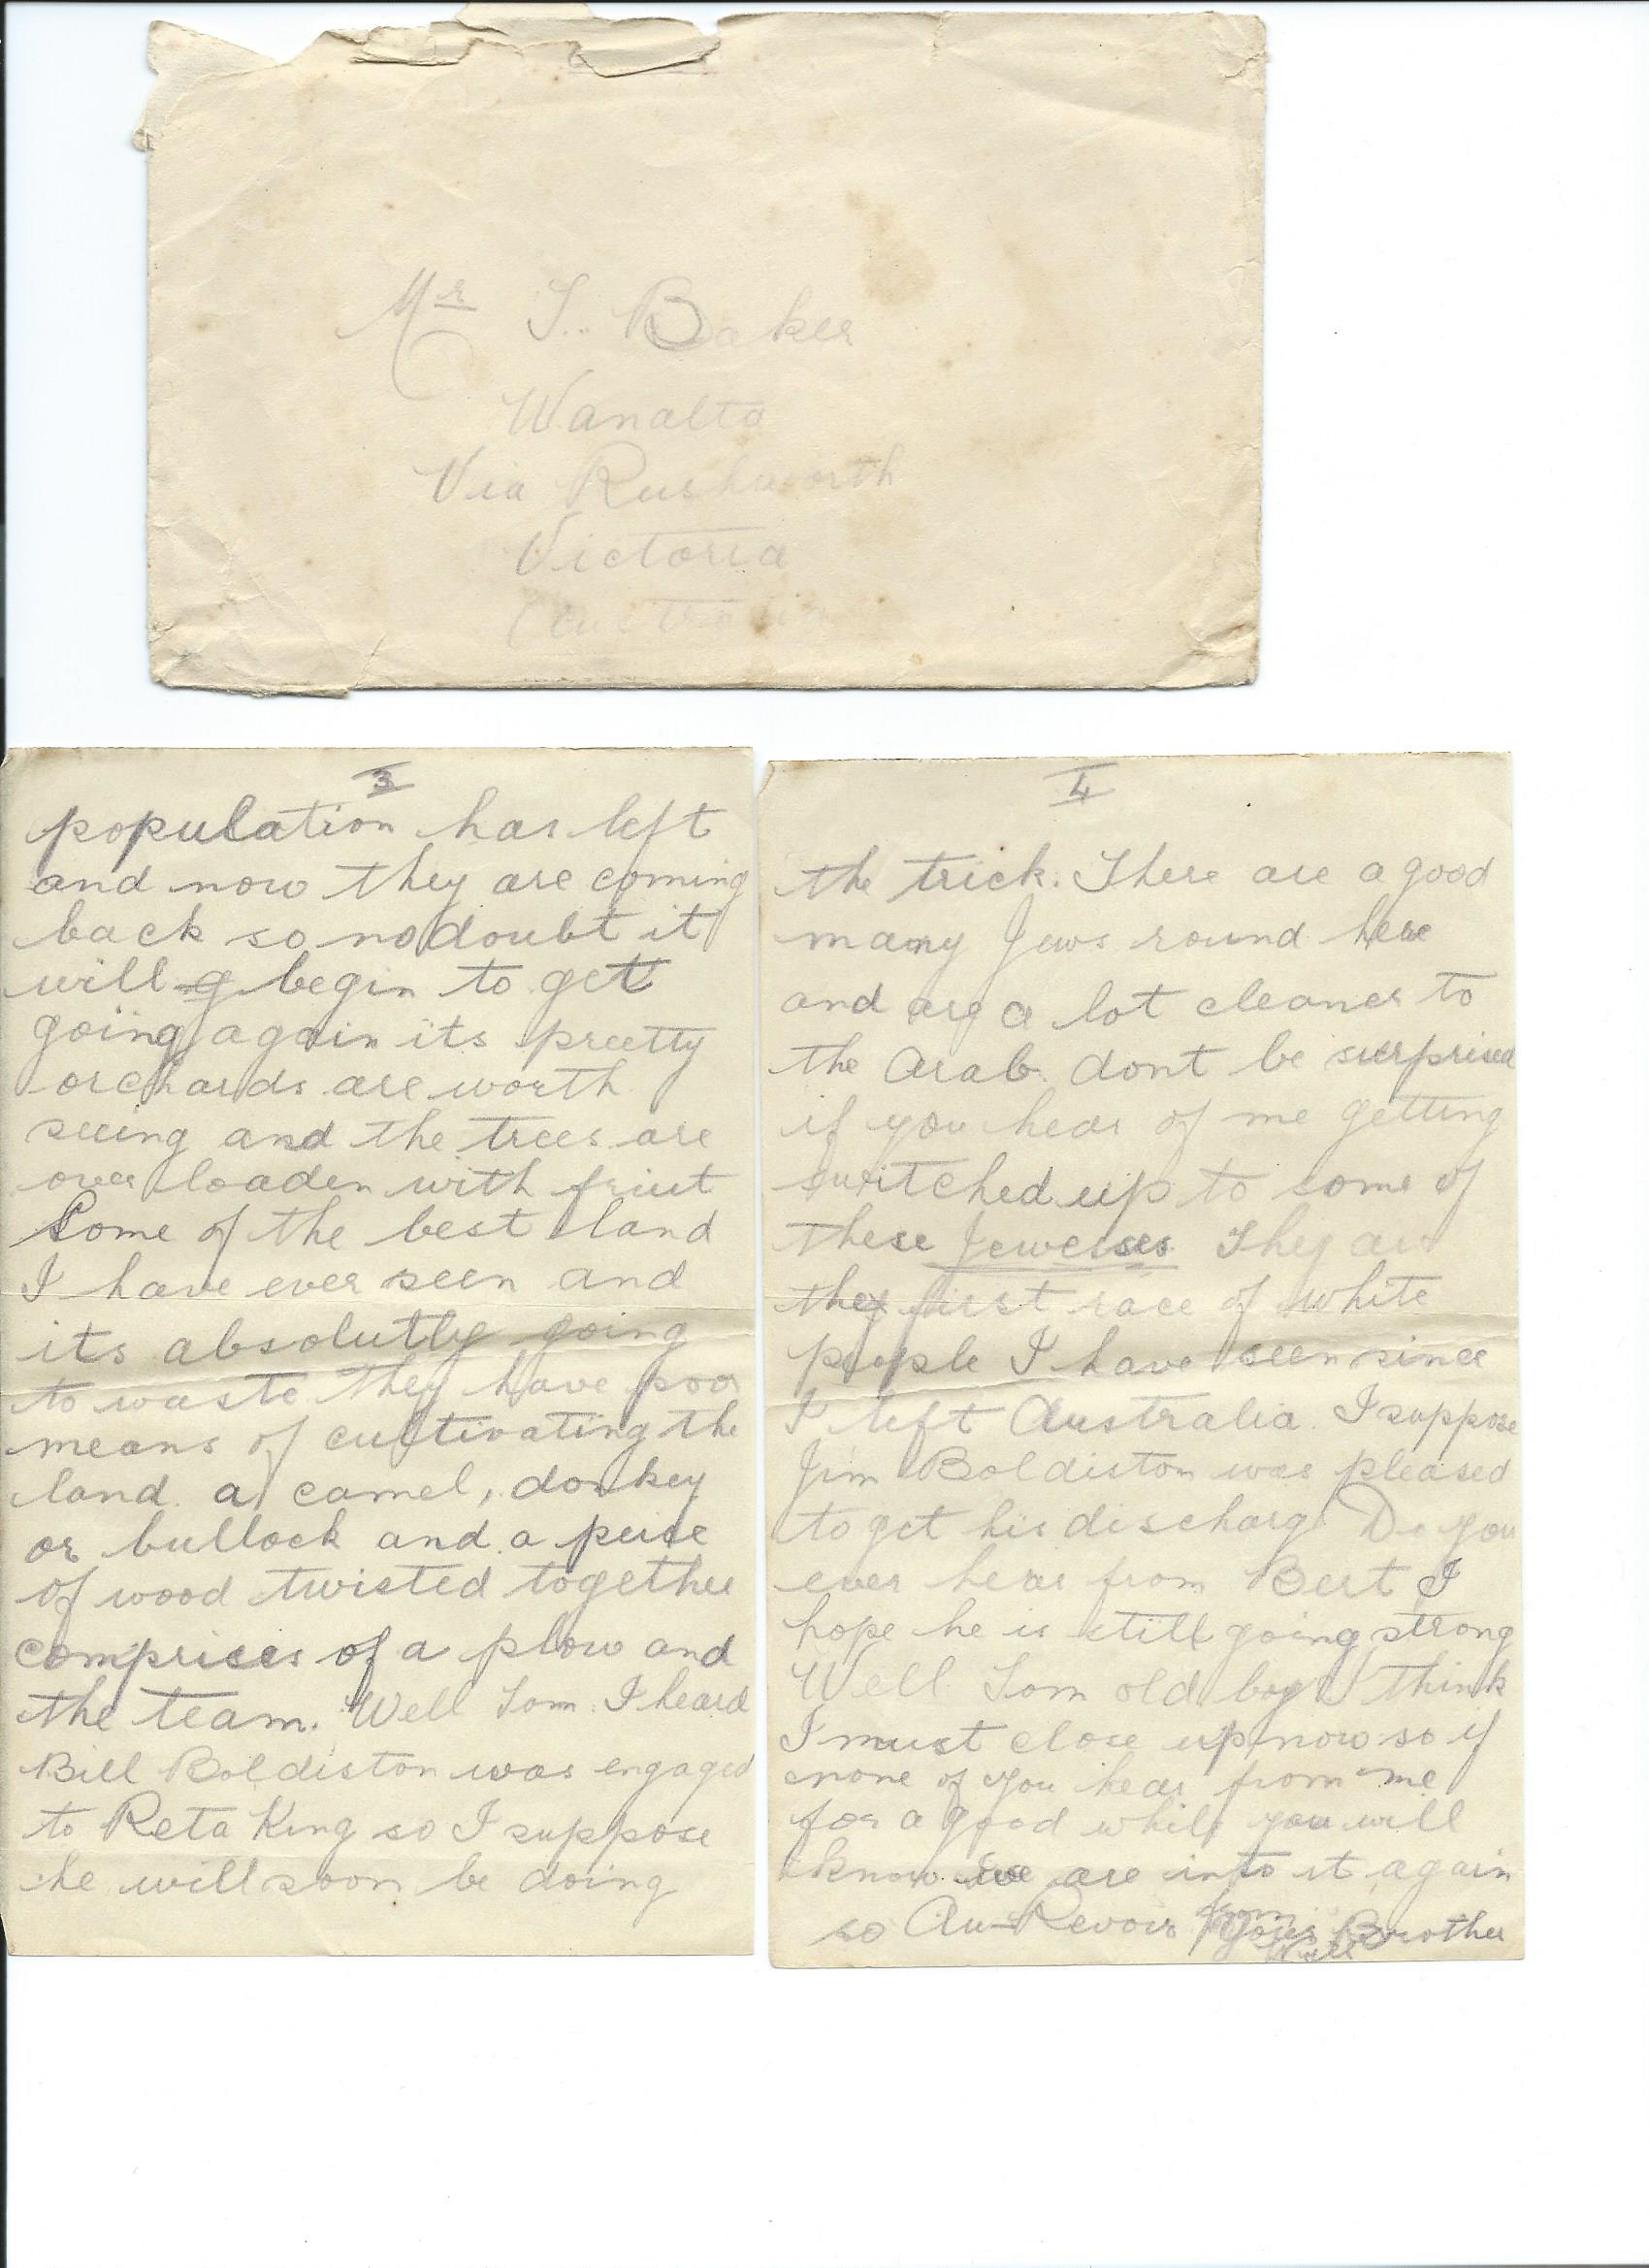 Mr T. Baker
Wanalta
Via Rushworth
Victoria
Australia
3
population has left
and now they are coming
back so no doubt it
will g begin to get
going again its preetty
orchards are worth
seeing and the trees are
over loaden with friut
Some of the best land
I have ever seen and
its absolutly going
to waste they have poor
means of cultivating the
land. a camel, donkey
or bullock and a peice
of wood twisted together
comprises of a plow and
the team. Well Tom. I heard
Bill Boldiston was engaged
to Reta King so I suppose
he will soon be doing
4
the trick. There are a good
many Jews round here
and are a lot cleaner to
the Arab. dont be surprised
if you hear of me getting
switched up to some of
these Jewesses. They are
the first race of white
people I have seen since
I left Australia. I suppose
Jim Boldiston was pleased
to get his discharg Do you
ever hear from Bert I
hope he is still going strong
Well Tom old boy I think
I must close up now so if
none of you hear from me
for a good while you will
know we are into it again
so Au-Revoir from Your Brother
Will